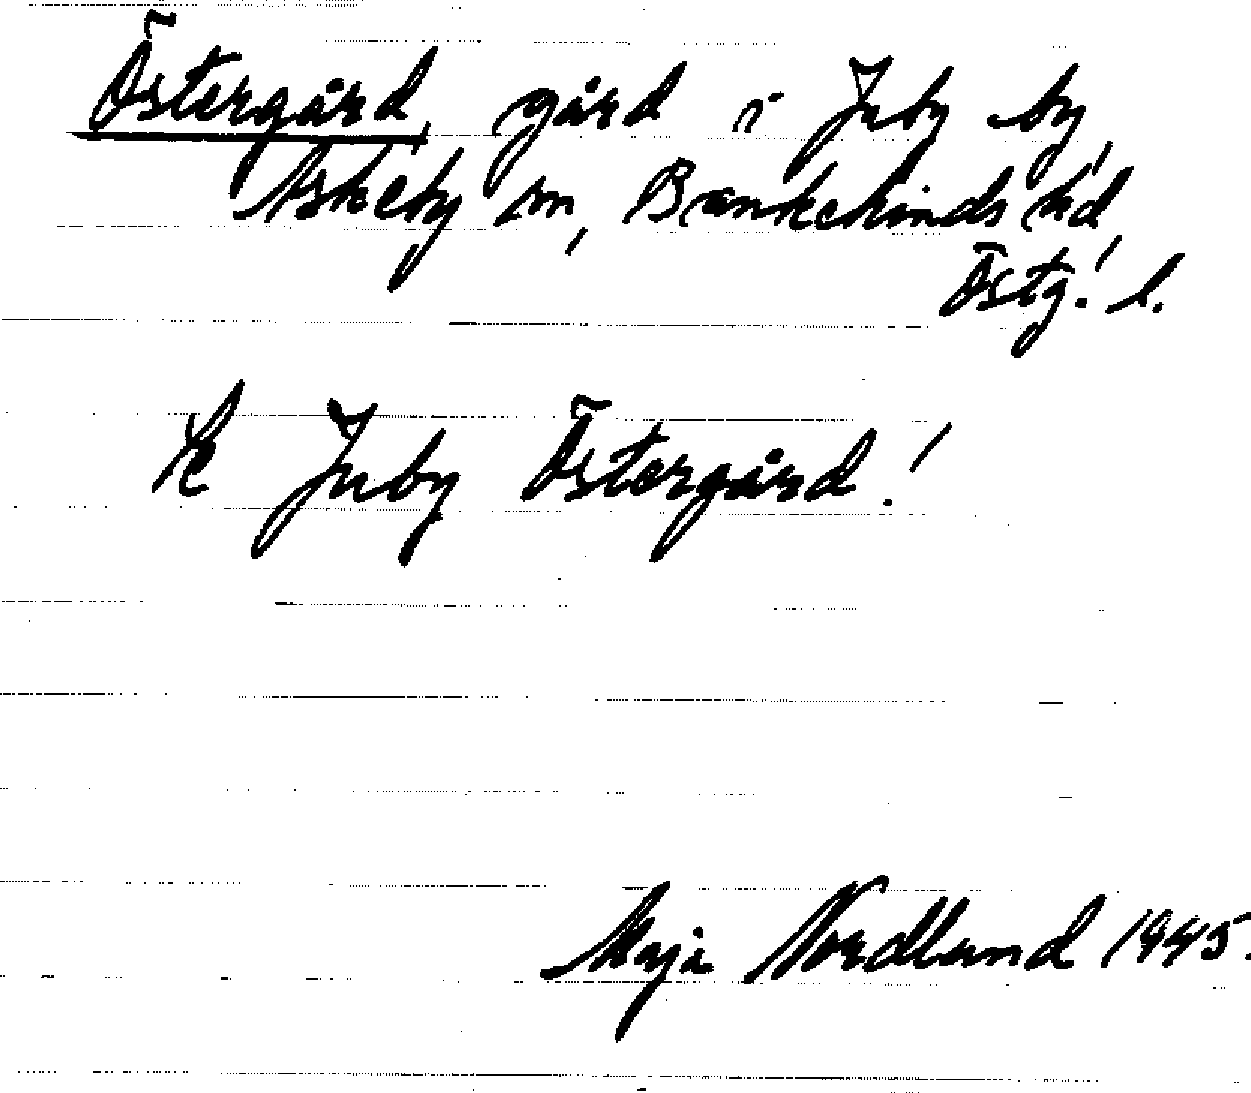 Östergård, gård i Juby by,
Askeby sn, Bankekinds hd,
Östg. l.
Se Juby Östergård!
Maja Nordlund 1945.